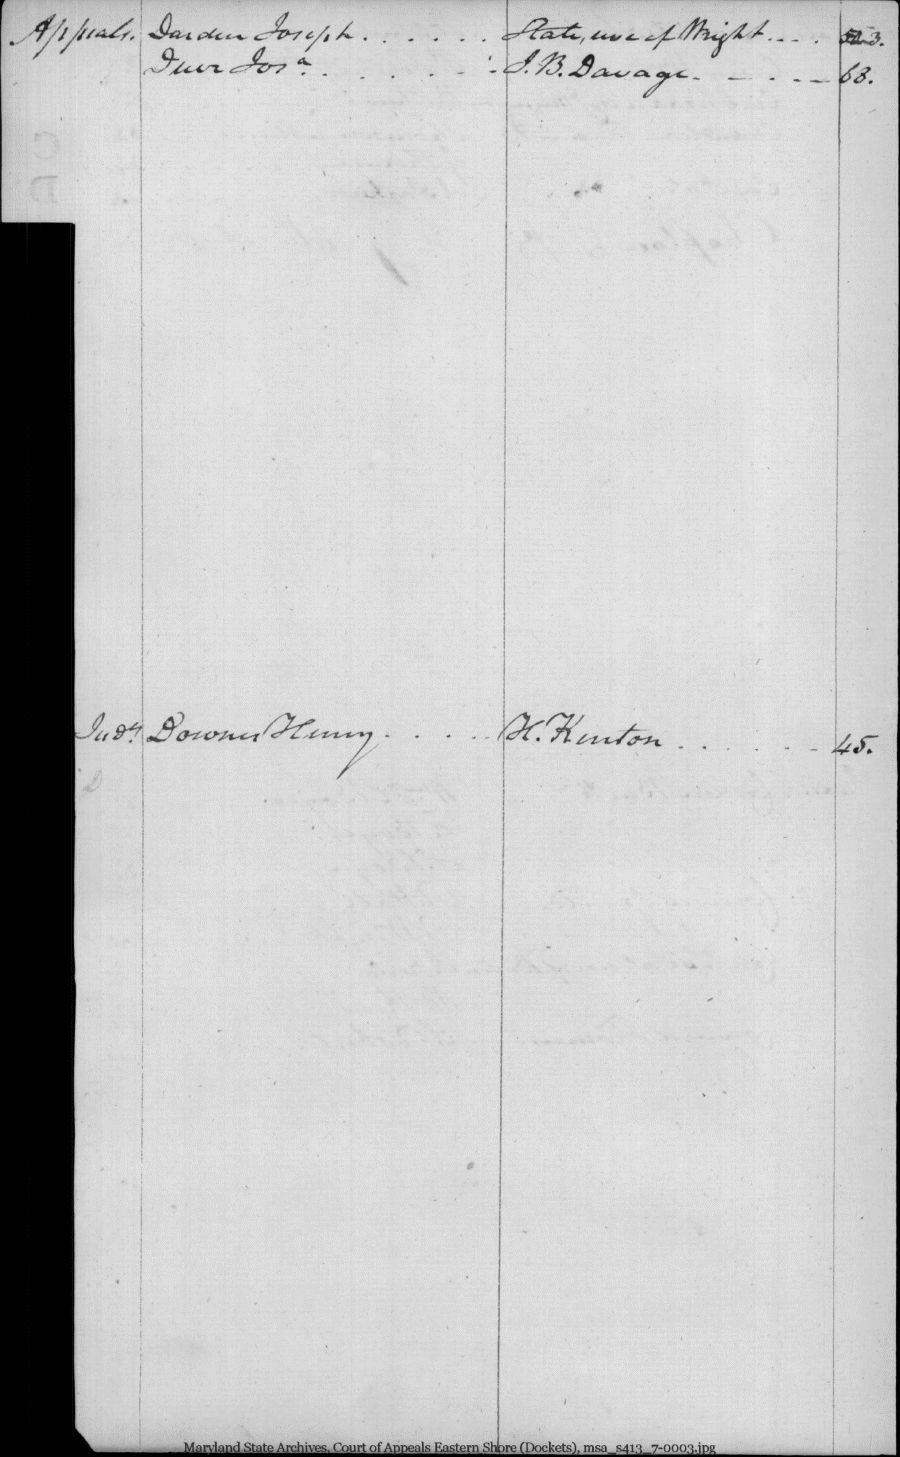 Appeals. Darden Joseph . . . . . . State, use of Wright . . . . 3.
Deur Josa . . . . . . J. B. Davage . . . . . 68.
Judts Downes Henry . . . . . H. Kenton . . . . . . 45.
Maryland State Archives, Court of Appeals Eastern Shore (Dockets), msa_s413_7-0003.jpg